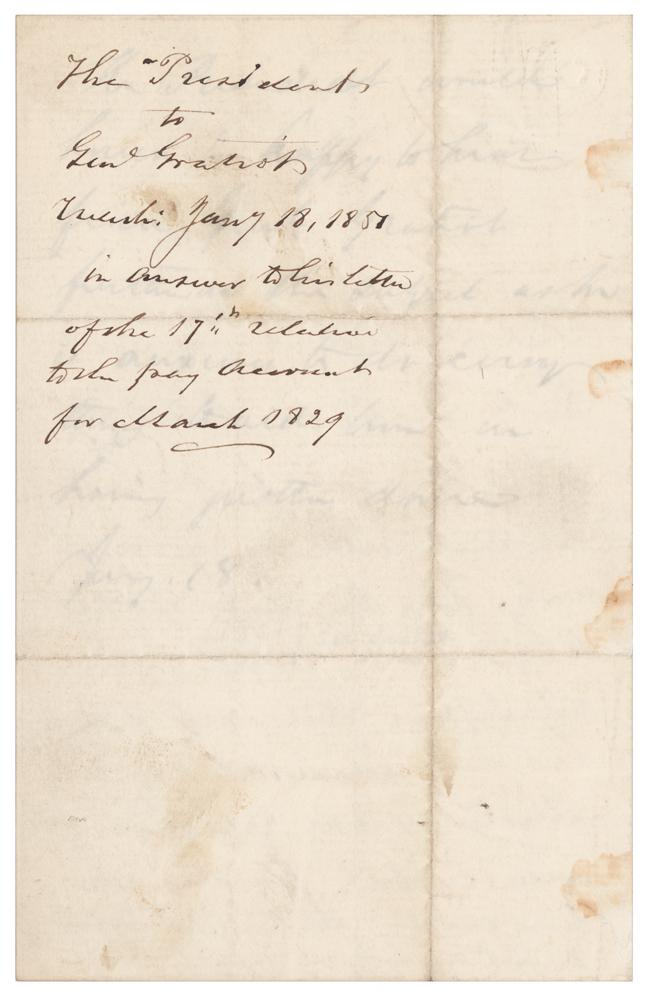 The President
to
Genl Gratiot
Wash: Jany 18, 1831
in answer to his letter
of the 17th relative
to the pay account
for March 1829